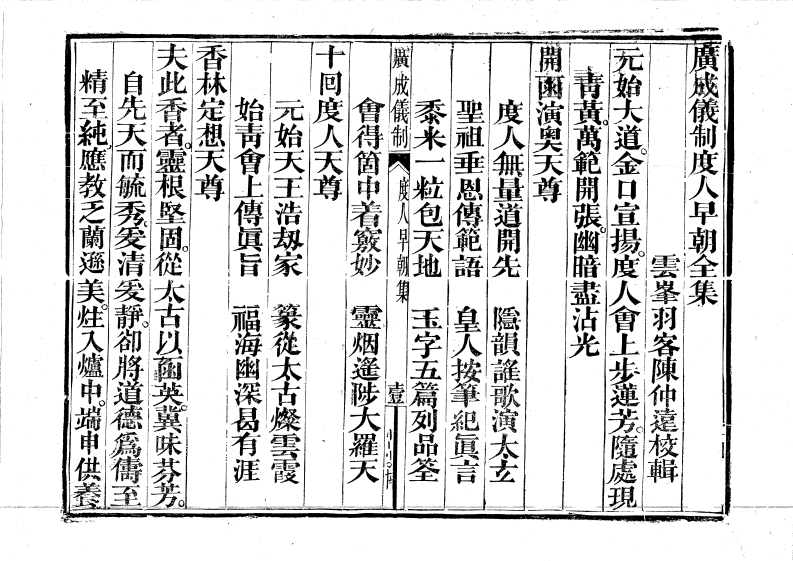 廣成儀制度人早朝全集
雲峯羽客陳仲遠校輯
元始大道。金口宣揚。度人會上步蓮芳。隨處現
青黃。萬範開張。幽暗盡沾光
開函演奧天尊
度人無量道開先 隱韻謠歌演太玄
聖祖垂恩傳範語 皇人按筆紀眞言
黍米一粒包天地 玉字五篇列品筌
廣成儀制 度人早朝集 壹
會得箇中着竅妙 靈烟遙陟大羅天
十回度人天尊
元始天王浩刼家 篆從太古燦雲霞
始靑會上傳眞旨 福海幽深曷有涯
香林定想天尊
夫此香者。靈根堅固。從太古以菡英。蓂味芬芳。
自先天而毓秀。爰清爰靜。卻將道德爲儔至
精至純。應教乏蘭遜美。炷入爐中。端申供養